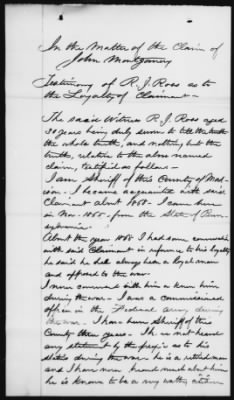 In the Matter of the Claim of
John Montgomery
Testimony of R. J. Ross as to
the Loyalty of Claimant —
The said Witness R. J. Ross aged
30 years being duly sworn to tell the truth
the whole truth, and nothing but the
truth, relative to the above named
claim, testified as follows —
I am Sheriff of this County of Mad-
ison. I became acquainted with said
Claimant about 1868. I came here
in Nov. 1865 from the State of Penn-
sylvania.
About the year 1868 I had some conversation
with said Claimant in reference to his loyalty
he said he had always been a loyal man
and opposed to the war.
I never conversed with him or knew him
during the war. I was a commissioned
officer in the Federal Army during
the war. I have been Sheriff of this
County three years. I have not heard
any statement by the people as to his
status during the war. he is a retired man
and I have never heard much about him
he is known to be a very wealthy citizen